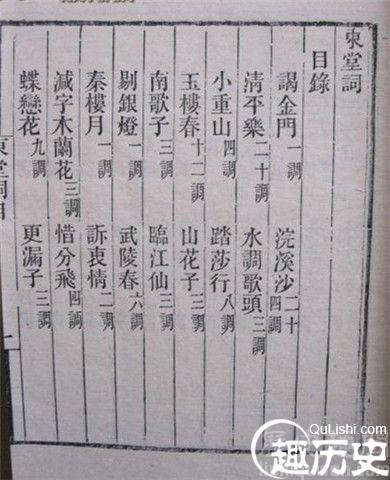 東堂詞
目錄
謁金門 一調 浣溪沙 二十四調
清平樂 二十調 水調歌頭 三調
小重山 四調 踏莎行 八調
玉樓春 十二調 山花子 三調
南歌子 三調 臨江仙 三調
剔銀燈 一調 武陵春 六調
秦樓月 一調 訴衷情 二調
減字木蘭花 三調 惜分飛 四調
蝶戀花 九調 更漏子 三調
東堂詞目 一
QuLishi.com
趣历史